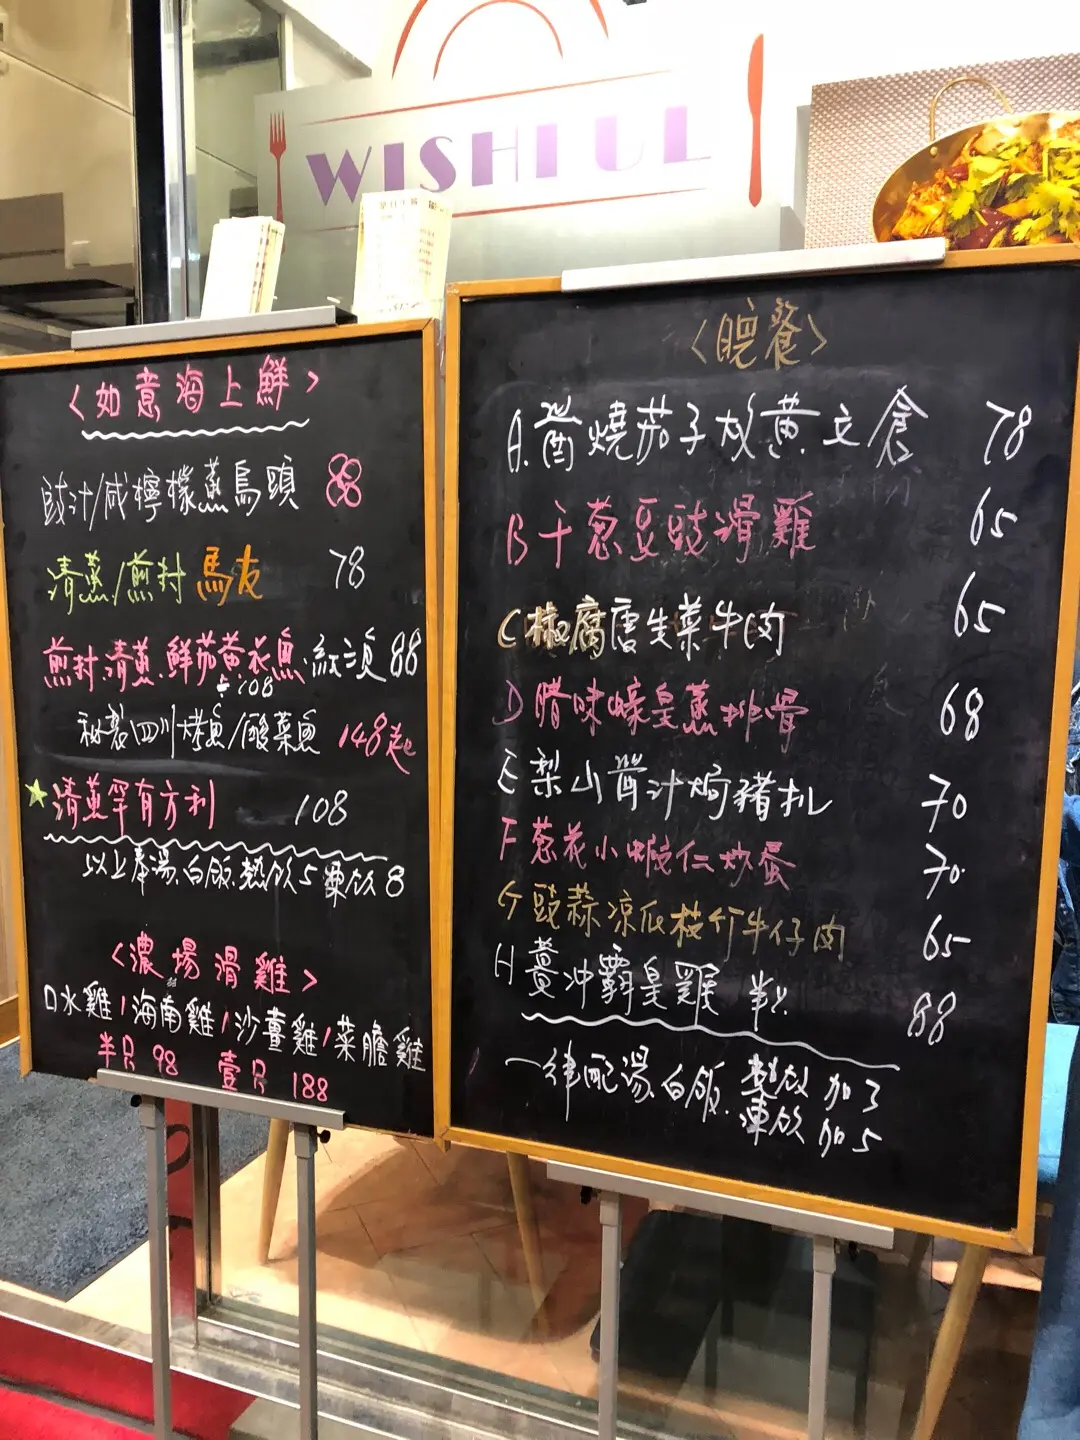 WISHFUL
<如意海上鮮>
豉汁/咸檸檬蒸烏頭 88
清蒸/煎封 馬友 78
煎封.清蒸.鮮茄黃花魚.紅三 88
108
秘製四川烤魚/酸菜魚 148起
清蒸罕有方利 108
以上奉湯.白飯.熱飲5凍飲8
<濃場滑雞>
口水雞/海南雞/沙薑雞/菜膽雞
半只 98 壹只 188
<晚餐>
A.醬燒茄子炆黃立倉 78
B 干葱豆豉滑雞 65
C 椒腐唐生菜牛肉 65
D 腊味蠔皇蒸排骨 68
E 梨山醬汁焗豬扒 70
F 葱花小蝦仁炒蛋 70
G 豉蒜凉瓜枝竹牛仔肉 65
H 薑冲霸皇雞 半只 88
一律配湯.白飯. 熱飲 加3
凍飲 加5